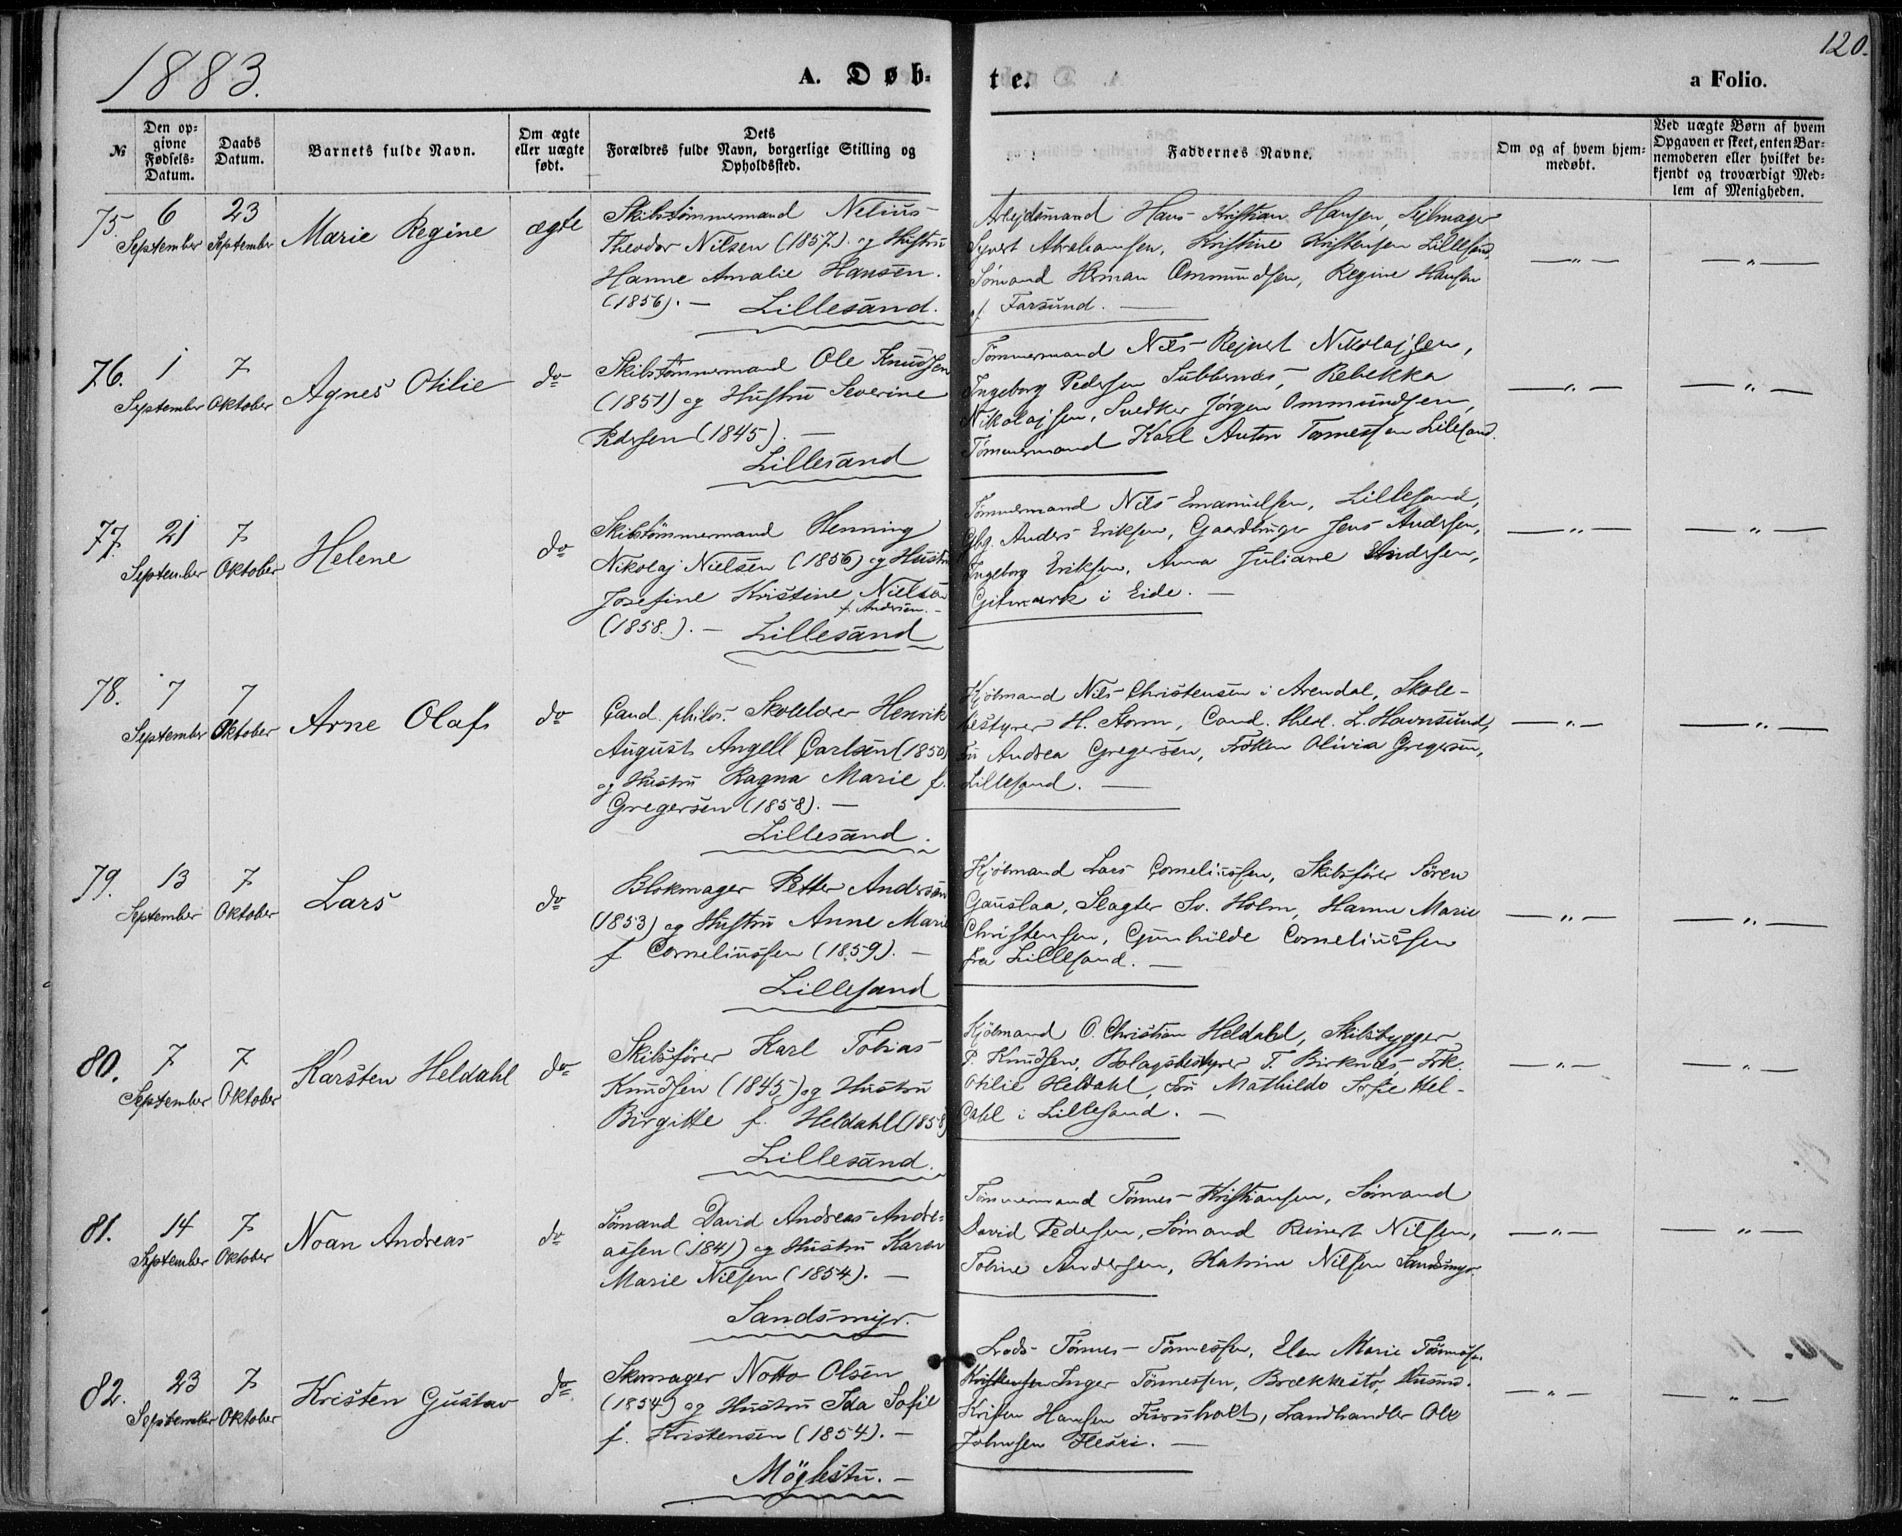 1883.
A. Døb-
te.
a Folio.
120.
№
Den op-
givne
Fødsels-
Datum.
Daabs
Datum.
Barnets fulde Navn.
Om ægte
eller uægte
født.
Dets
Forældres fulde Navn, borgerlige Stilling og
Opholdssted.
Faddernes Navne.
Om og af hvem hjem-
medøbt.
Ved uægte Børn af hvem
Opgaven er skeet, enten Bar-
nemoderen eller hvilket be-
kjendt og troværdigt Med-
lem af Menigheden.
75.
6
September
23
September
Marie Regine
ægte
Skibstømmermand Nelius
Theodor Nilsen (1857). og Hustru
Hanne Amalie Hansen.
(1856). — Lillesand.
Arbejdsmand Hans Kristian Hansen, Sejlmager
Syvert Abrahamsen, Kristine Kristensen Lillesand,
Sømand Herman Ommundsen, Regine Hansen
af Farsund. —
— „ —
— „ —
76.
1
September
7
Oktober
Agnes Otilie
do
Skibstømmermand Ole Knudsen
(1851) og Hustru Severine
Pedersen (1845). —
Lillesand
Tømmermand Nils Rejnert Nikolajsen,
Ingeborg Pedersen Rebekka
Nikolajsen, Snedker Jørgen Ommundsen,
Tømmermand Karl Anton Tønnessen Lillesand.
— „ —
— „ —
77.
21
September
7
Oktober
Helene
do
Skibstømmermand Henning
Nikolaj Nielsen (1856) og Hustru
Josefine Kristine Nielsen
f. Andersen. —
(1858.). — Lillesand
Tømmermand Nils Emanuelsen, Lillesand,
Gbg. Anders Eriksen, Gaardbruger Jens Andersen,
Ingeborg Eriksen, Anna Juliane Andersen,
Gitmark i Eide. —
— „ —
— „ —
78.
7
September
7
Oktober
Arne Olaf
do
Cand. philos. Skolelærer Henrik
August Angell Carlsen (1850)
og Hustru Ragna Marie f.
Gregersen (1858). —
Lillesand.
Kjøbmand Nils Christensen i Arendal, Skole-
bestyrer H. Storm, Cand. theol. L. Havnsund,
Fru Andrea Gregersen, Frøken Olivia Gregersen,
Lillesand. —
— „ —
— „ —
79.
13
September
7
Oktober
Lars
do
Blokmager Petter Andersen
(1853) og Hustru Anne Marie
f Corneliussen (1859). —
Lillesand
Kjøbmand Lars Corneliussen, Skibsfører Søren
Gauslaa, Slagter Sv. Holm, Hanne Marie
Christensen, Gunhilde Corneliussen
fra Lillesand. —
— „ —
— „ —
80.
7
September
7
Oktober
Karsten Heldahl
do
Skibsfører Karl Tobias
Knudsen (1845) og Hustru
Birgitte f. Heldahl (1858)
Lillesand.
Kjøbmand O. Christian Heldahl, Skibsbygger
P. Knudsen, Bolagsbestyrer T. Birknes, Frk.
Otilie Heldahl, Fru Mathilde Sofie Hel-
dahl i Lillesand. —
— „ —
— „ —
81.
14
September
7
Oktober
Noan Andreas
do
Sømand David Andreas Andre-
assen (1841) og Hustru Karen
Marie Nilsen (1854). —
Sandsmyr.
Tømmermand Tønnes Kristiansen, Sømand
David Pedersen, Sømand Reinert Nilsen,
Tobine Andersen, Katrine Nilsen Sandsmyr.
— „ —
— „ —
82.
23
September
7
Oktober
Kristen Gustav
do
Skomager Notto Olsen
(1854) og Hustru Ida Sofie
f. Kristensen (1854). —
Møglestu. —
Lods Tønnes Tønnessen, Elen Marie
Kristensen Inger Tønnessen, Brækkestø,
Hansen Furuholt, Landhandler Ole
Johnsen —
— „ —
— „ —